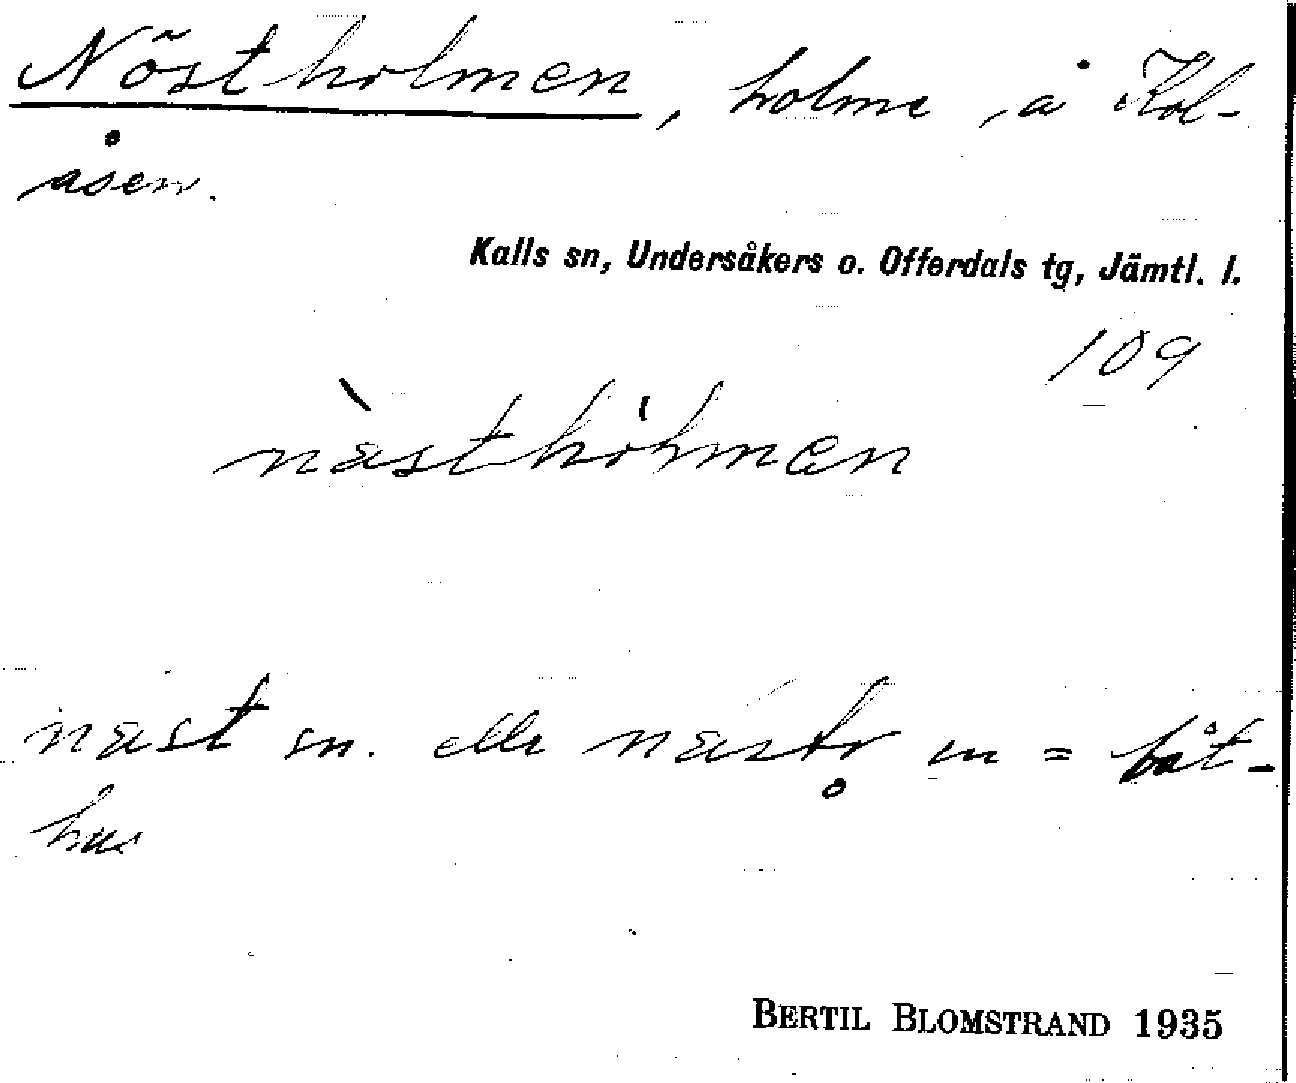 Nöstholmen, holme å Kol-
åsen.
Kalls sn, Undersåkers o. Offerdals tg, Jämtl. l.
109
nàsthòlmen
nast sn. elle nastr̥ m = båt-
hus
BERTIL BLOMSTRAND 1935